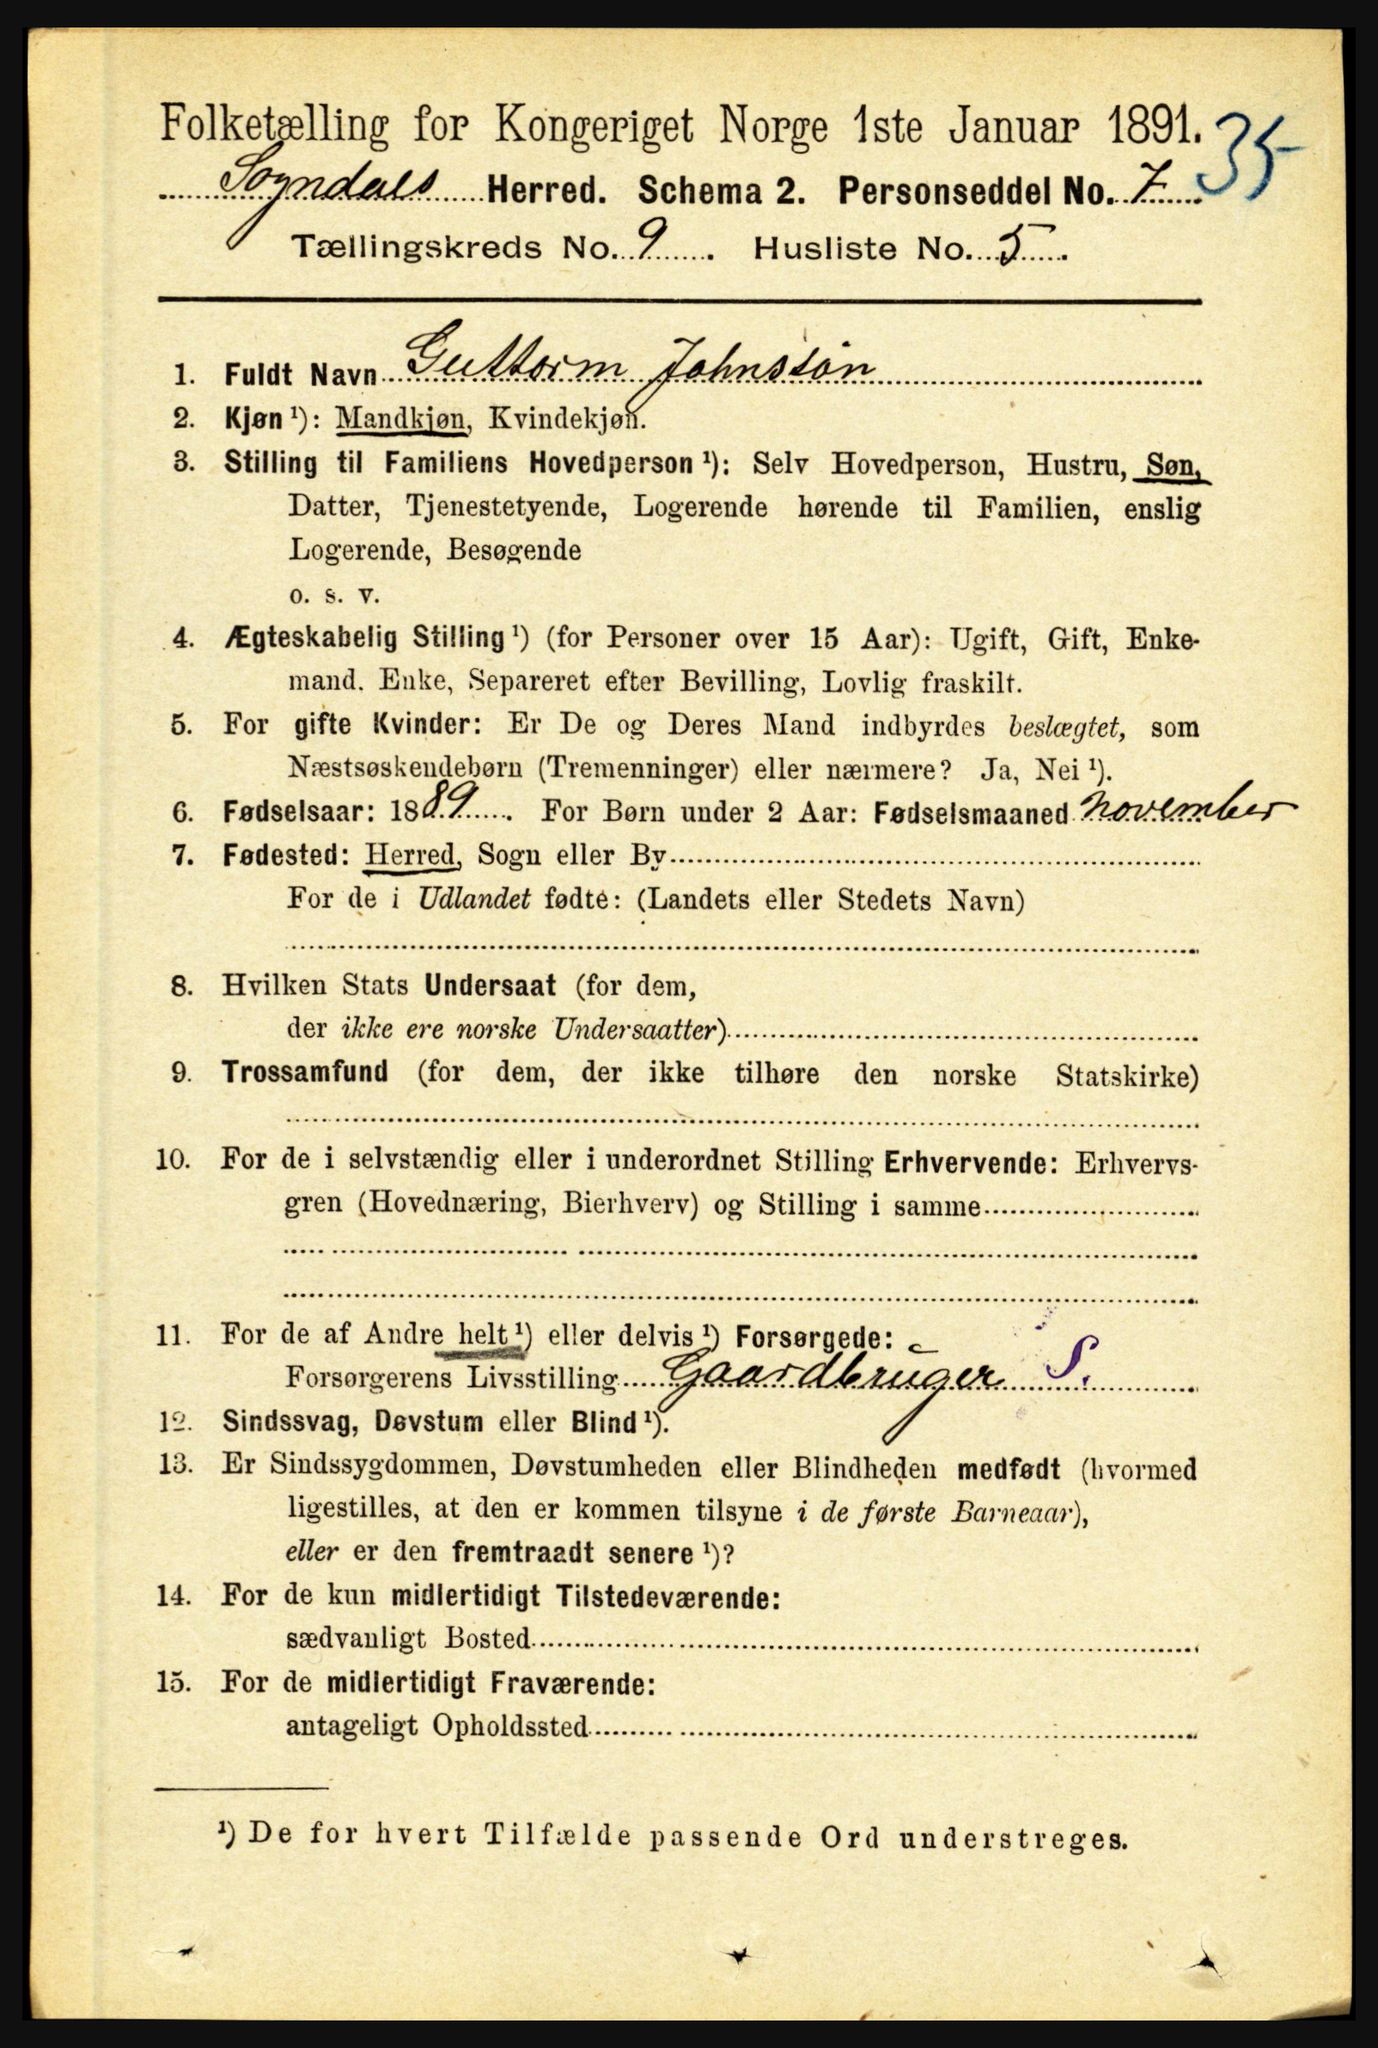 Folketælling for Kongeriget Norge 1ste Januar 1891.
35
Sogndals Herred. Schema 2. Personseddel No. 7
Tællingskreds No. 9. Husliste No. 5.
1. Fuldt Navn Guttorm Johnssøn
2. Kjøn ¹): Mandkjøn, Kvindekjøn.
3. Stilling til Familiens Hovedperson ¹): Selv Hovedperson, Hustru, Søn,
Datter, Tjenestetyende, Logerende hørende til Familien, enslig
Logerende, Besøgende
o. s. v.
4. Ægteskabelig Stilling ¹) (for Personer over 15 Aar): Ugift, Gift, Enke-
mand. Enke, Separeret efter Bevilling, Lovlig fraskilt.
5. For gifte Kvinder: Er De og Deres Mand indbyrdes beslægtet, som
Næstsøskendebørn (Tremenninger) eller nærmere? Ja, Nei ¹).
6. Fødselsaar: 1889. For Børn under 2 Aar: Fødselsmaaned november
7. Fødested: Herred, Sogn eller By
For de i Udlandet fødte: (Landets eller Stedets Navn)
8. Hvilken Stats Undersaat (for dem,
der ikke ere norske Undersaatter)
9. Trossamfund (for dem, der ikke tilhøre den norske Statskirke)
10. For de i selvstændig eller i underordnet Stilling Erhvervende: Erhvervs-
gren (Hovednæring, Bierhverv) og Stilling i samme
11. For de af Andre helt ¹) eller delvis ¹) Forsørgede:
Forsørgerens Livsstilling Gaardbruger S.
12. Sindssvag, Døvstum eller Blind ¹).
13. Er Sindssygdommen, Døvstumheden eller Blindheden medfødt (hvormed
ligestilles, at den er kommen tilsyne i de første Barneaar),
eller er den fremtraadt senere ¹)?
14. For de kun midlertidigt Tilstedeværende:
sædvanligt Bosted
15. For de midlertidigt Fraværende:
antageligt Opholdssted
¹) De for hvert Tilfælde passende Ord understreges.